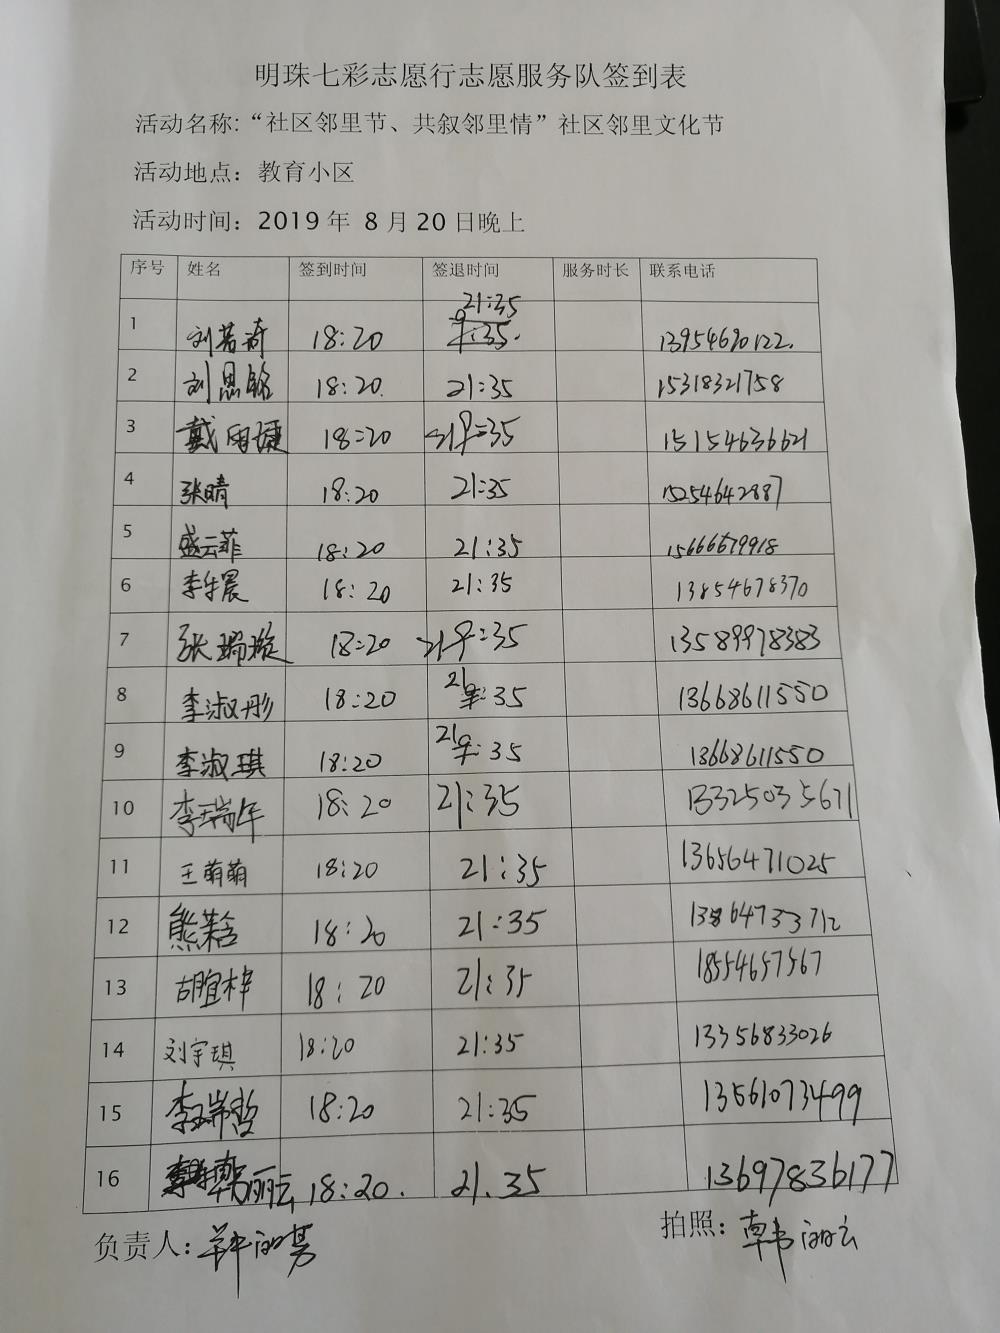 明珠七彩志愿行志愿服务队签到表
活动名称:“社区邻里节、共叙邻里情”社区邻里文化节
活动地点：教育小区
活动时间：2019年 8月20日晚上
序号 姓名 签到时间 签退时间 服务时长 联系电话
21:35
1 刘若琦 18:20 13954690122.
2 刘思铭 18:20. 21:35 15318321758
3 戴雨捷 18:20 21:35 15154636621
4 张晴 18:20 21:35 15254642887
5 盛云菲 18:20 21:35 15666679918
6 李乍晨 18:20 21:35 13854678370
7 张瑞璇 18:20 21:35 13589978383
8 李淑彤 18:20 21:35 13668611550
9 李淑琪 18:20 21:35 13668611550
10 李瑞年 18:20 21:35 13325035671
11 王萌萌 18:20 21:35 13656471025
12 熊 18:20 21:35 13864733712
13 胡宜梓 18:20 21:35 18554657567
14 刘宇琪 18:20 21:35 13356833026
15 李瑞哲 18:20 21:35 13561073499
16 韩丽云 18:20. 21.35 13697836177
负责人： 拍照：韩丽云